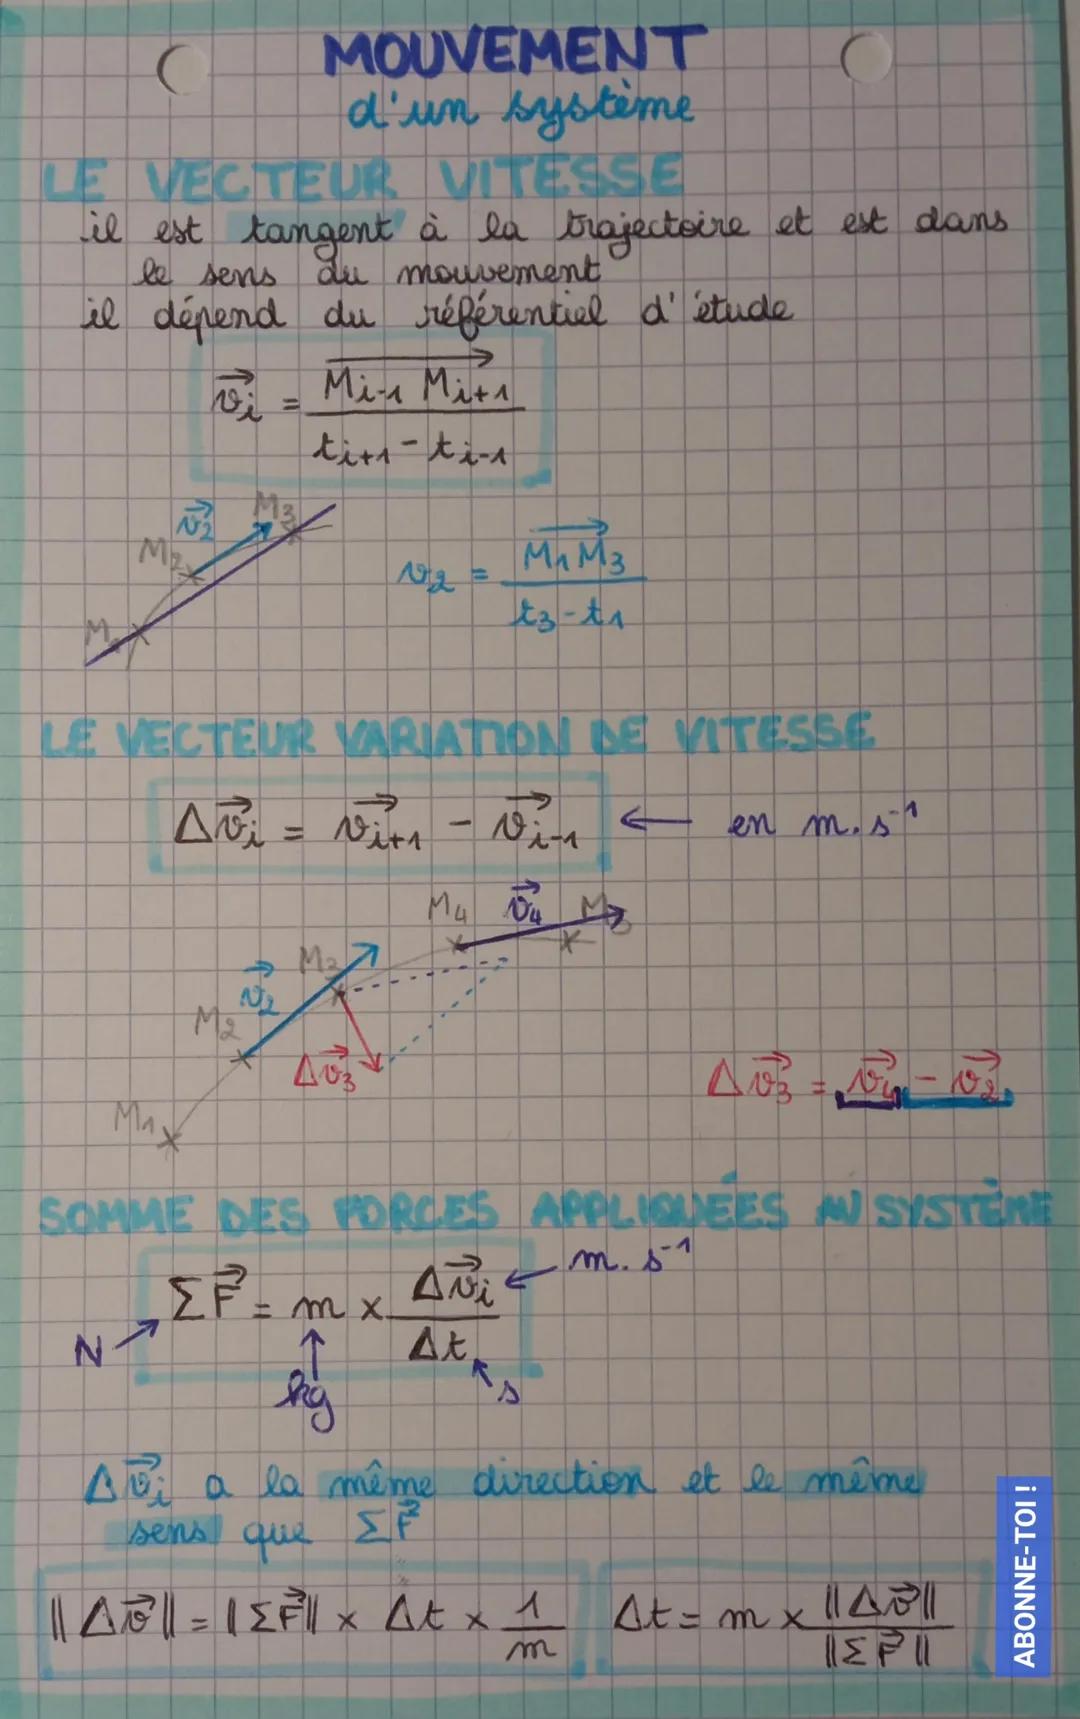 MOUVEMENT
d'un système
LE VECTEUR VITESSE
il est tangent à la trajectoire et est dans
le sens du mouvement
il dépend du référentiel d'étude
v⃗i = M⃗i-1 Mi+1 / ti+1 - ti-1
M1 M2 v⃗2 M3
v2 = M⃗1M3 / t3 - t1
LE VECTEUR VARIATION DE VITESSE
Δv⃗i = v⃗i+1 - v⃗i-1 ← en m.s⁻¹
M1 M2 v⃗2 M3 M4 v⃗4 M5
Δv⃗3
Δv⃗3 = v⃗4 - v⃗2
SOMME DES FORCES APPLIQUÉES AU SYSTÈME
ΣF⃗ = m × Δv⃗i / Δt
m.s⁻¹
N
kg
s
Δv⃗i a la même direction et le même
sens que ΣF⃗
||Δv⃗|| = ||ΣF⃗|| × Δt × 1/m
Δt = m × ||Δv⃗|| / ||ΣF⃗||
ABONNE-TOI !